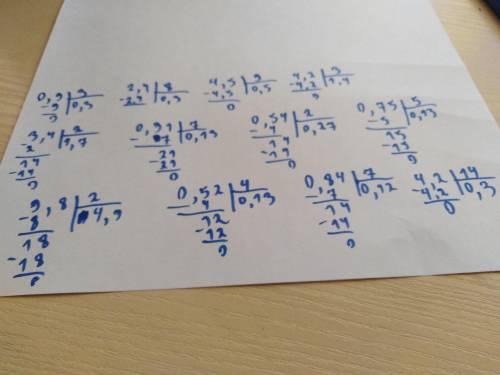 0,9 3 2,4 8 4,5 9 4,2 3
-9 0,3 -2,4 0,3 -4,5 0,5 -4,2 1,4
0 0 0
-3,4 2 0,91 7 0,54 2 0,75 5
2 1,7 -7 0,13 -4 0,27 -5 0,15
14 21 14 25
-14 -21 -14 0
0 0 0
-9,8 2 0,52 4 0,84 7 4,2 14
8 4,9 -4 0,13 -7 0,12 -4,2 0,3
18 12 14 0
-18 -12 -14
0 0 0